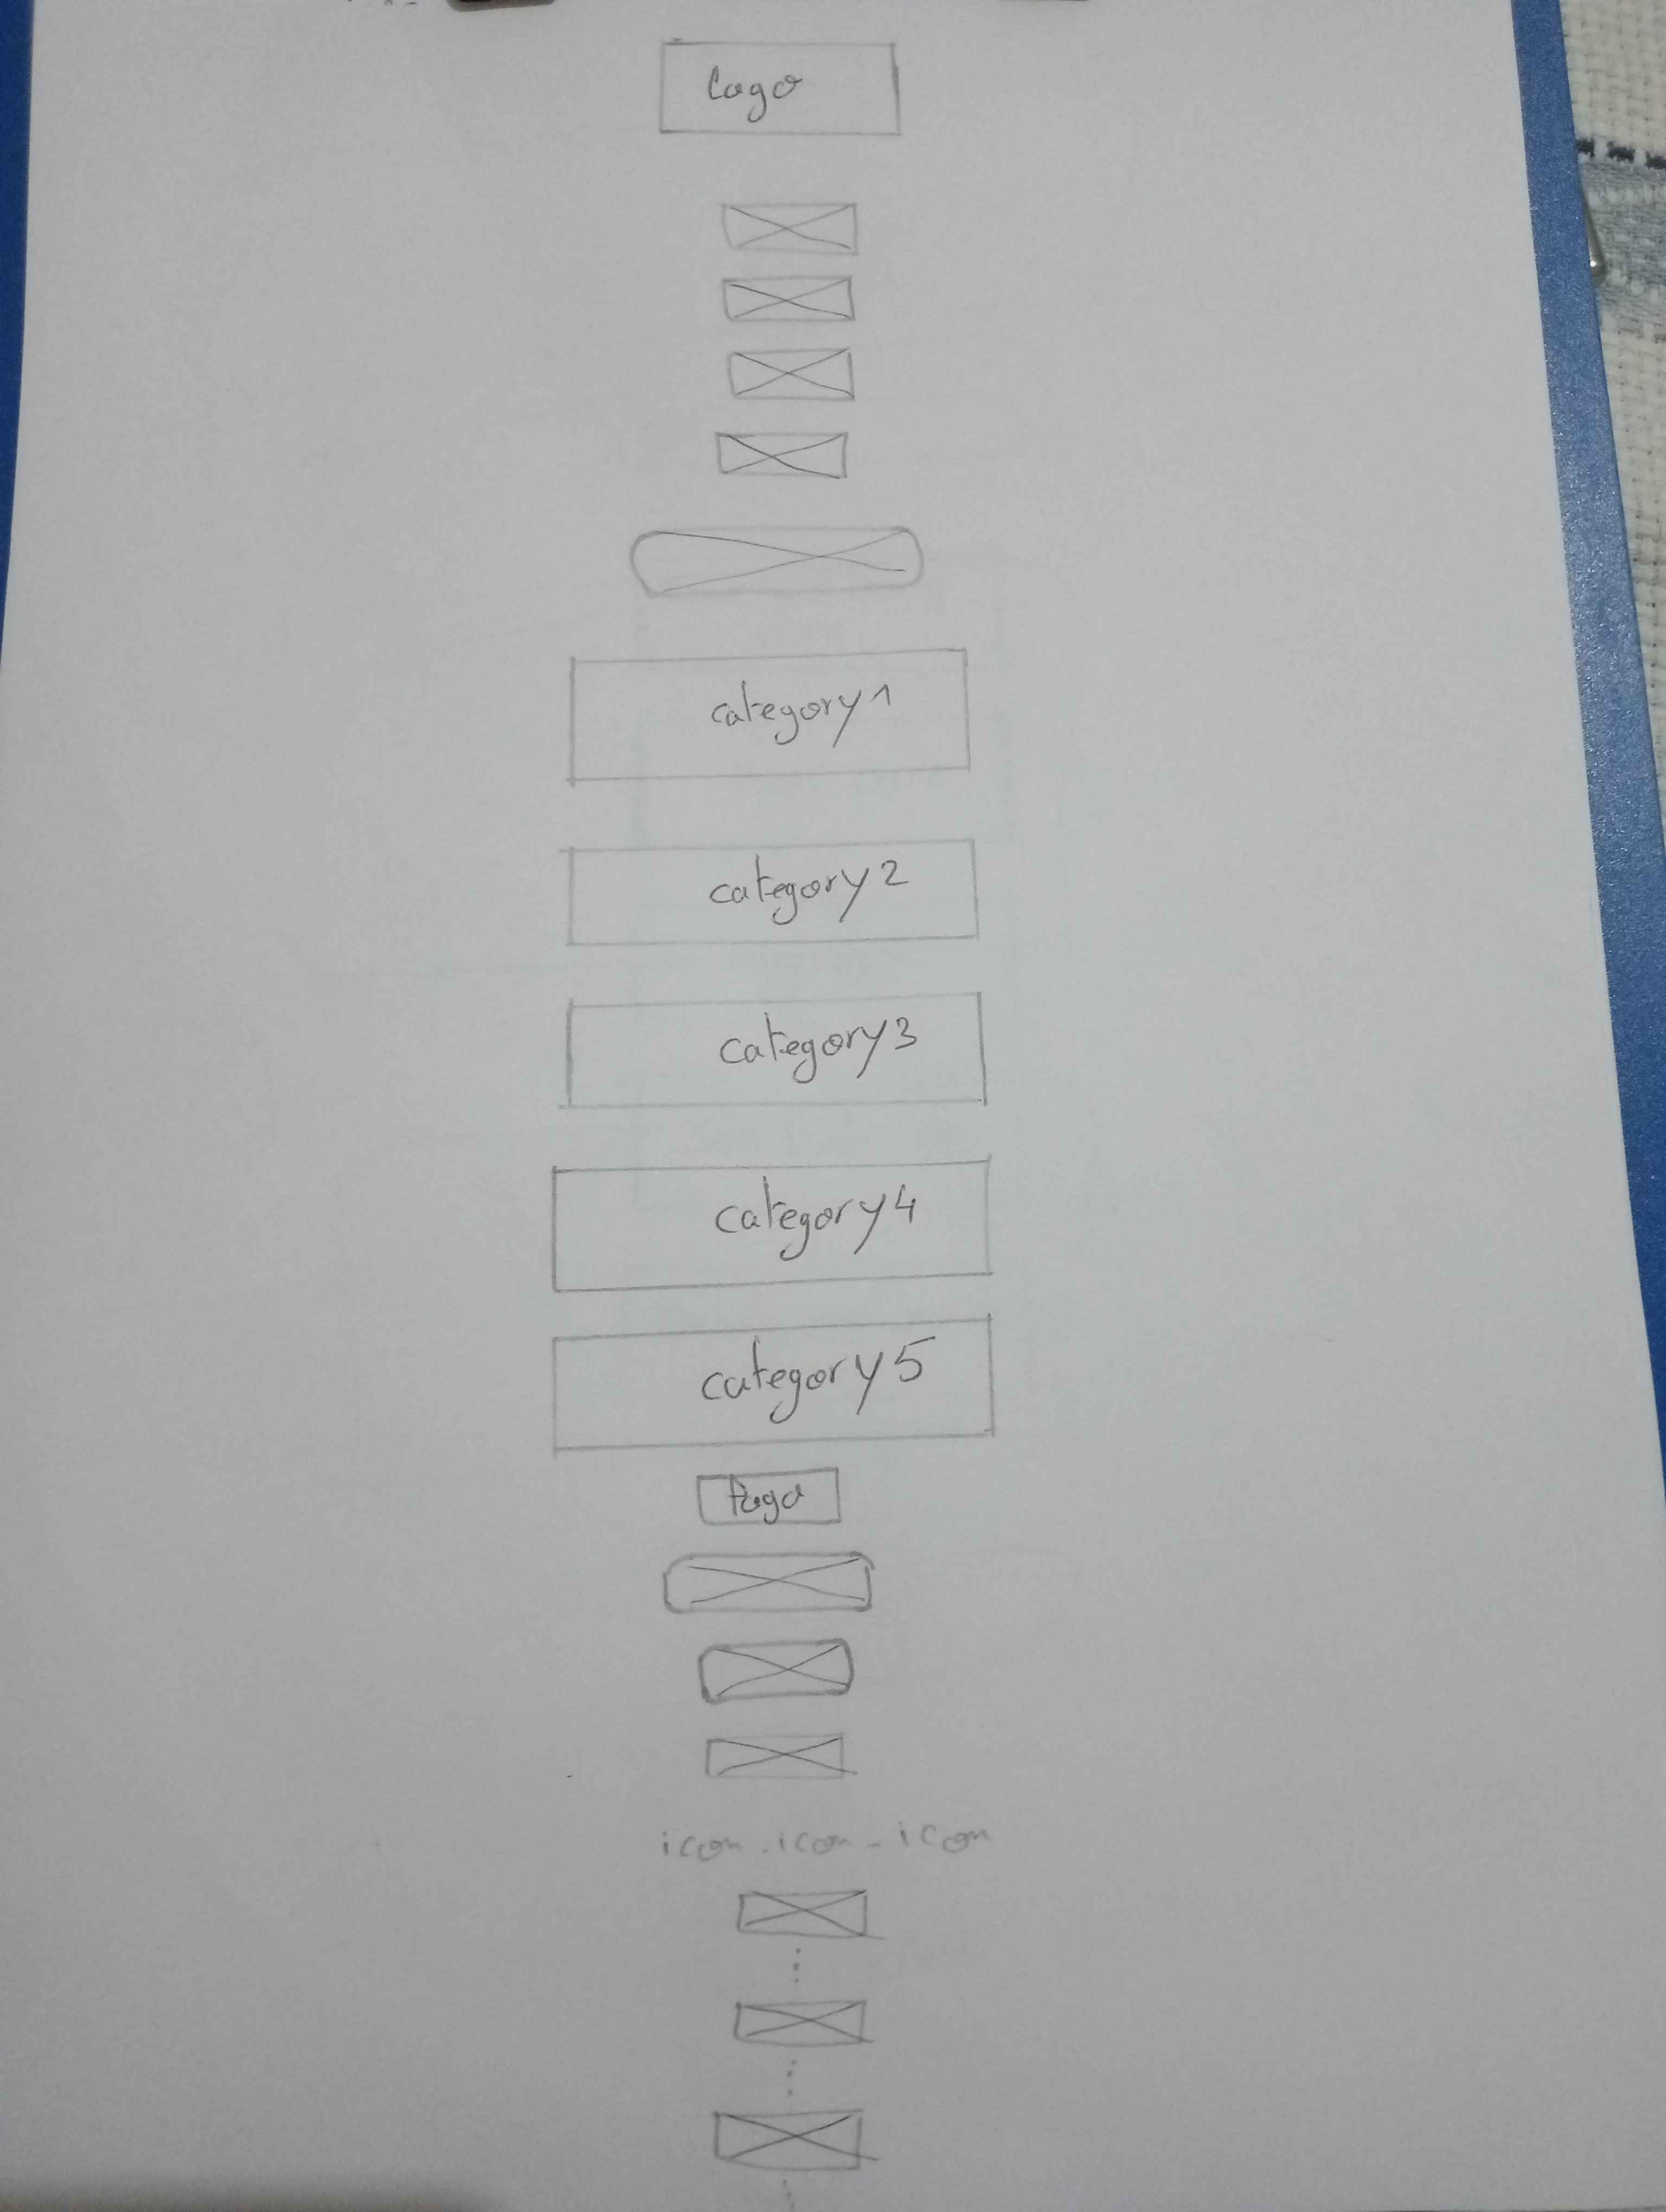 Logo
category 1
category 2
category 3
category 4
category 5
icon . icon - icon